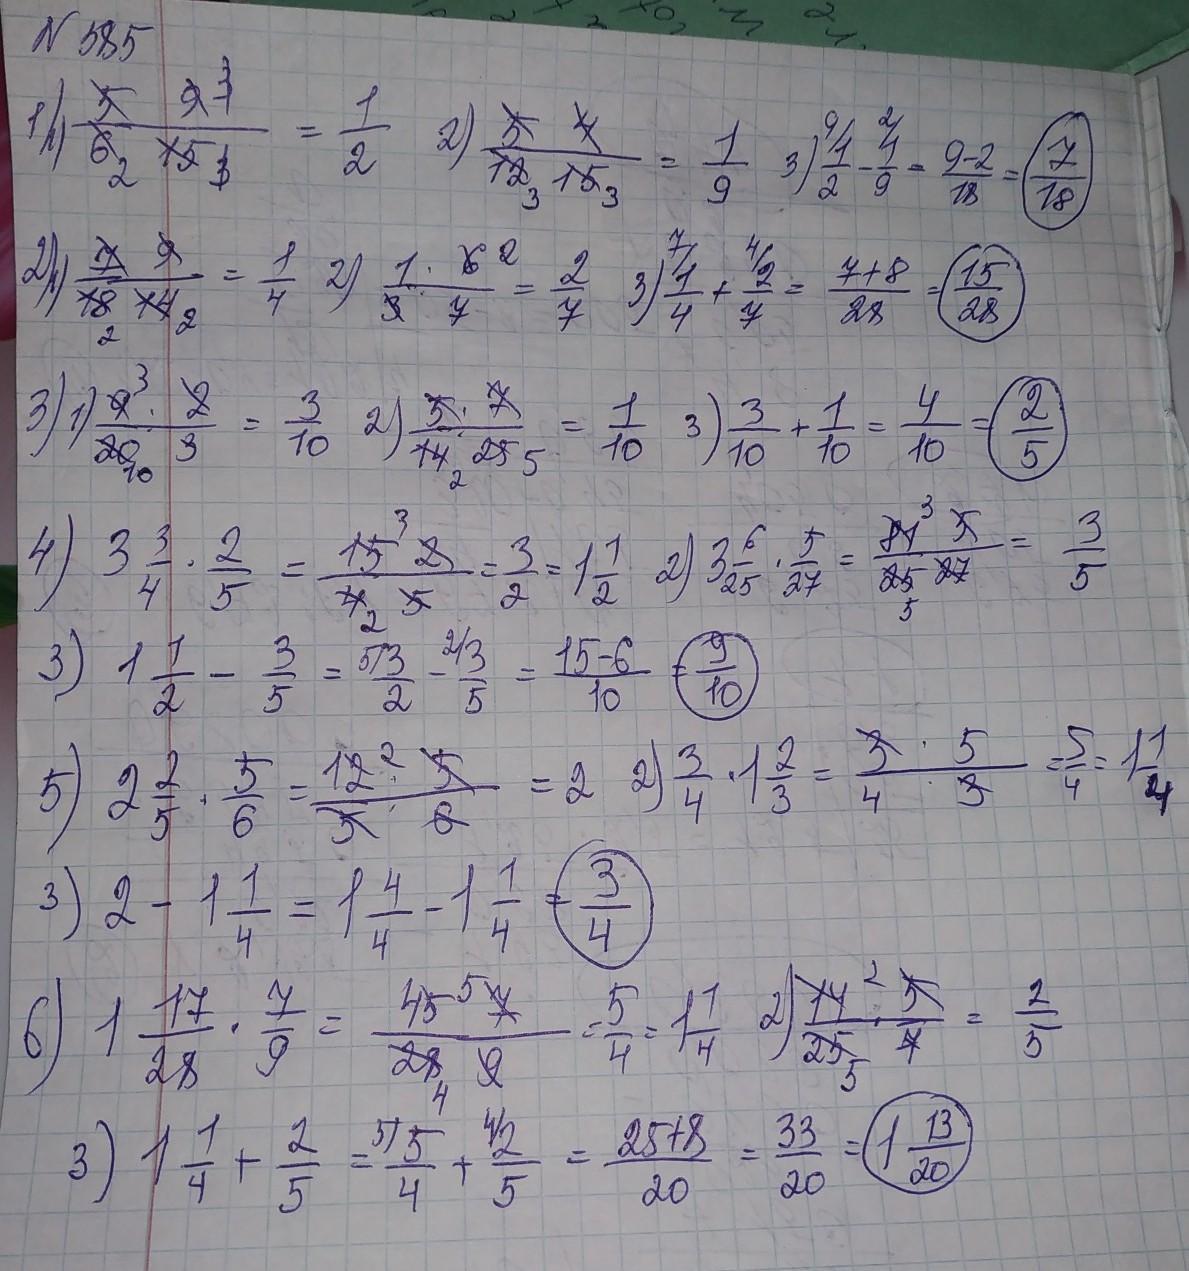 N 585
1) 1) 5 9 3 / 6 2 15 3 = 1/2 2) 5 4 / 12 3 15 3 = 1/9 3) 9/ 1/2 - 2/ 1/9 = 9-2/18 = 7/18
2) 1) 7 9 / 18 2 14 2 = 1/4 2) 1 · 6 2 / 3 · 7 = 2/7 3) 7/ 1/4 + 4/ 2/7 = 7+8/28 = 15/28
3) 1) 9 3 · 2 / 20 10 · 3 = 3/10 2) 5 · 7 / 14 2 · 25 5 = 1/10 3) 3/10 + 1/10 = 4/10 = 2/5
4) 3 3/4 · 2/5 = 15 3 2 / 4 2 5 = 3/2 = 1 1/2 2) 3 6/25 · 5/27 = 81 3 5 / 25 5 27 = 3/5
3) 1 1/2 - 3/5 = 5/ 3/2 - 2/ 3/5 = 15-6/10 = 9/10
5) 2 2/5 · 5/6 = 12 2 · 5 / 5 · 6 = 2 2) 3/4 · 1 2/3 = 3 · 5 / 4 · 3 = 5/4 = 1 1/4
3) 2 - 1 1/4 = 1 4/4 - 1 1/4 = 3/4
6) 1 17/28 · 7/9 = 45 5 7 / 28 4 9 = 5/4 = 1 1/4 2) 14 2 · 5 / 25 5 · 7 = 2/5
3) 1 1/4 + 2/5 = 5/ 5/4 + 4/ 2/5 = 25+8/20 = 33/20 = 1 13/20